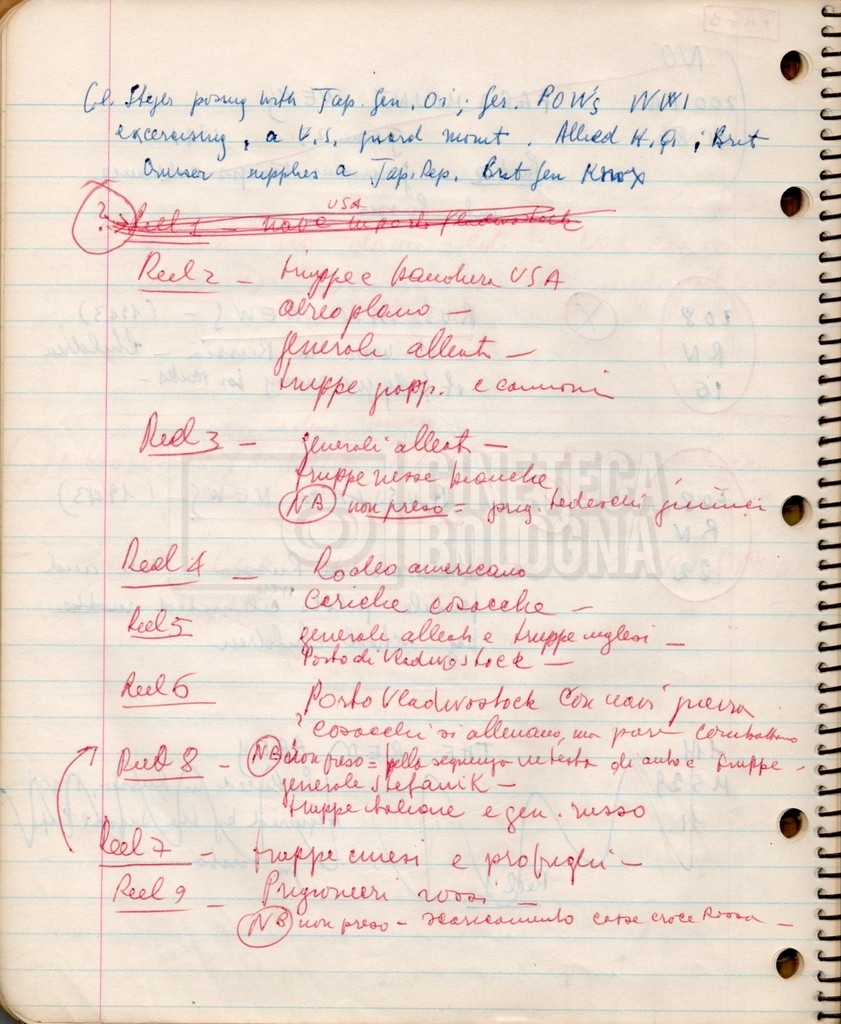 Col. Steyer posing with Jap. Gen. Oi; Ger. POW's WW1
excercising, a U.S. guard mount. Allied H.Q.; Brit
Cruiser supplies a Jap. Dep. Brit Gen Knox
USA
? Reel 1 - nave in porto Vladivostock
Reel 2 - truppe e bandiera USA
aereoplano -
generali alleati -
truppe giapp. e cannoni
Reel 3 - generali alleati -
truppe russe bianche
NB non preso = prig. tedeschi
Reel 4 - Rodeo americano
Cariche cosacche -
Reel 5 generali alleati e truppe inglesi -
Porto di Vladivostock -
Reel 6 Porto Vladivostock con navi guerra
? cosacchi si allenano, ma pare combattano
Reel 8 - NB non preso = bella sequenza in testa di auto e truppe -
generale Stefanik -
truppe italiane e gen. russo
Reel 7 - truppe cinesi e profughi -
Reel 9 - Prigionieri rossi -
NB non preso - scaricamento casse croce Rossa -
CINETECA
BOLOGNA